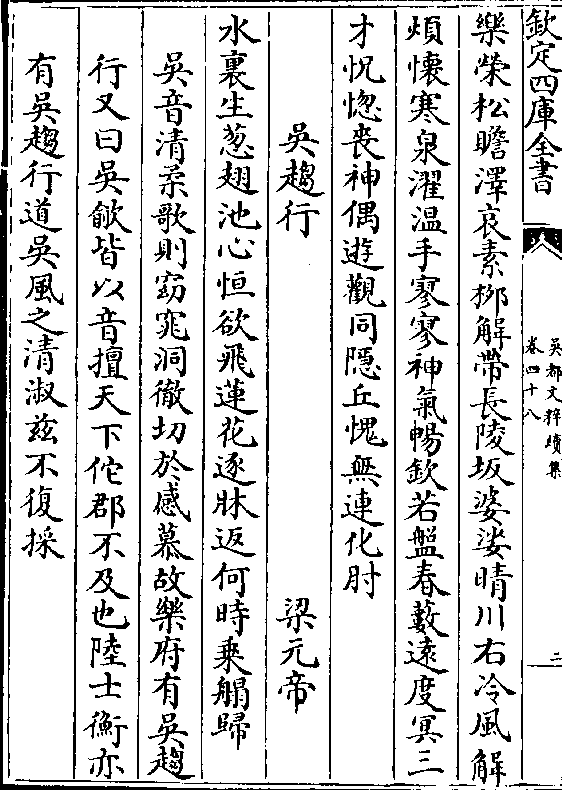 欽定四庫全書
吳都文粹續集
卷四十八
二
樂榮松瞻澤哀素栁解帶長陵坂婆娑晴川右冷風解
煩懐寒泉濯温手寥寥神氣暢欽若盤春藪逺度冥三
才怳惚喪神偶遊觀同隠丘愧無連化肘
吳趨行
梁元帝
水裏生葱翅池心恒欲飛蓮花逐牀返何時乗鷁歸
吳音清柔歌則窈窕洞徹切於感慕故樂府有吳趨
行又曰吳歈皆以音擅天下佗郡不及也陸士衡亦
有吳趨行道吳風之清淑兹不復採